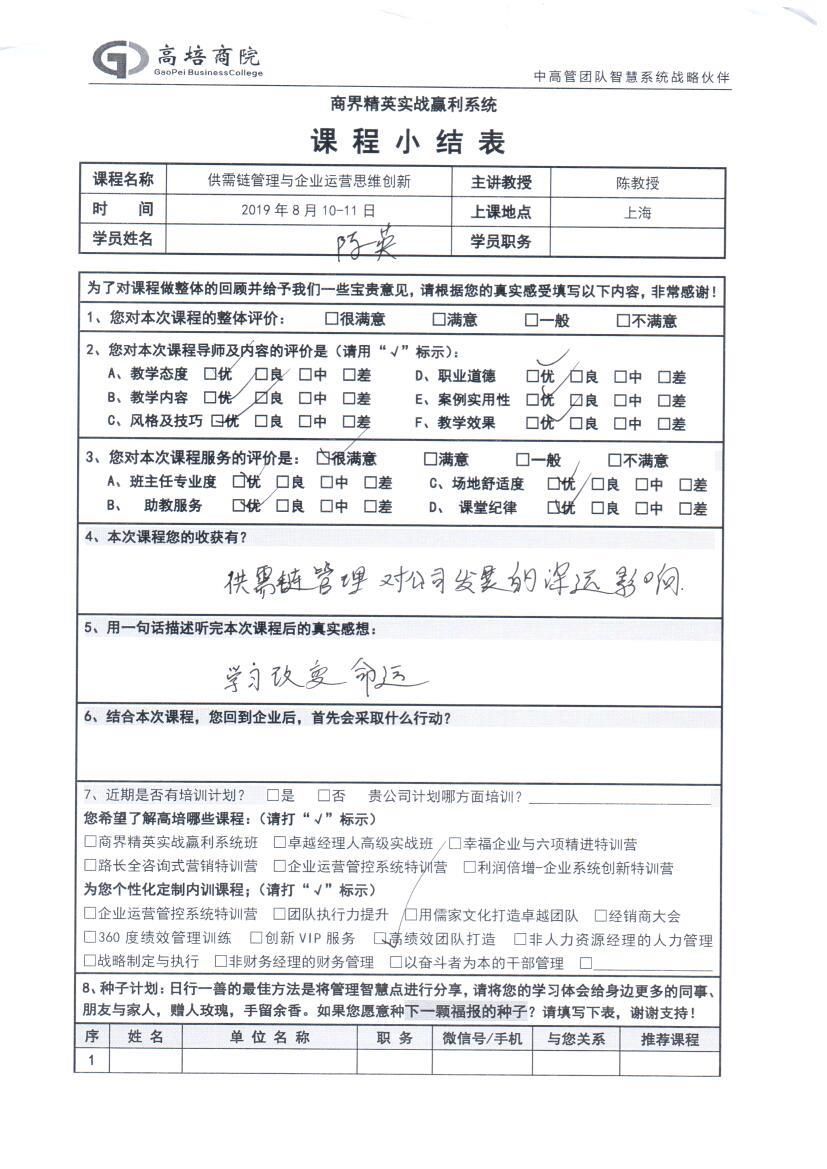 高培商院
GaoPei BusinessCollege
中高管团队智慧系统战略伙伴
商界精英实战赢利系统
课程小结表
课程名称 供需链管理与企业运营思维创新 主讲教授 陈教授
时 间 2019年8月10-11日 上课地点 上海
学员姓名 陈英 学员职务
为了对课程做整体的回顾并给予我们一些宝贵意见,请根据您的真实感受填写以下内容,非常感谢!
1、您对本次课程的整体评价: □很满意 □满意 □一般 □不满意
2、您对本次课程导师及内容的评价是(请用“√”标示):
A、教学态度 □优 □良 □中 □差 D、职业道德 □优 □良 □中 □差
B、教学内容 □优 □良 □中 □差 E、案例实用性 □优 □良 □中 □差
C、风格及技巧 □优 □良 □中 □差 F、教学效果 □优 □良 □中 □差
3、您对本次课程服务的评价是: □很满意 □满意 □一般 □不满意
A、班主任专业度 □优 □良 □中 □差 C、场地舒适度 □优 □良 □中 □差
B、 助教服务 □优 □良 □中 □差 D、 课堂纪律 □优 □良 □中 □差
4、本次课程您的收获有?
供需链管理对公司发展的深远影响.
5、用一句话描述听完本次课程后的真实感想:
学习改变命运
6、结合本次课程,您回到企业后,首先会采取什么行动?
7、近期是否有培训计划? □是 □否 贵公司计划哪方面培训?
您希望了解高培哪些课程:(请打“√”标示)
□商界精英实战赢利系统班 □卓越经理人高级实战班 □幸福企业与六项精进特训营
□路长全咨询式营销特训营 □企业运营管控系统特训营 □利润倍增-企业系统创新特训营
为您个性化定制内训课程;(请打“√”标示)
□企业运营管控系统特训营 □团队执行力提升 □用儒家文化打造卓越团队 □经销商大会
□360度绩效管理训练 □创新VIP服务 □高绩效团队打造 □非人力资源经理的人力管理
□战略制定与执行 □非财务经理的财务管理 □以奋斗者为本的干部管理 □
8、种子计划:日行一善的最佳方法是将管理智慧点进行分享,请将您的学习体会给身边更多的同事、
朋友与家人,赠人玫瑰,手留余香。如果您愿意种下一颗福报的种子?请填写下表,谢谢支持!
序 姓名 单位名称 职务 微信号/手机 与您关系 推荐课程
1